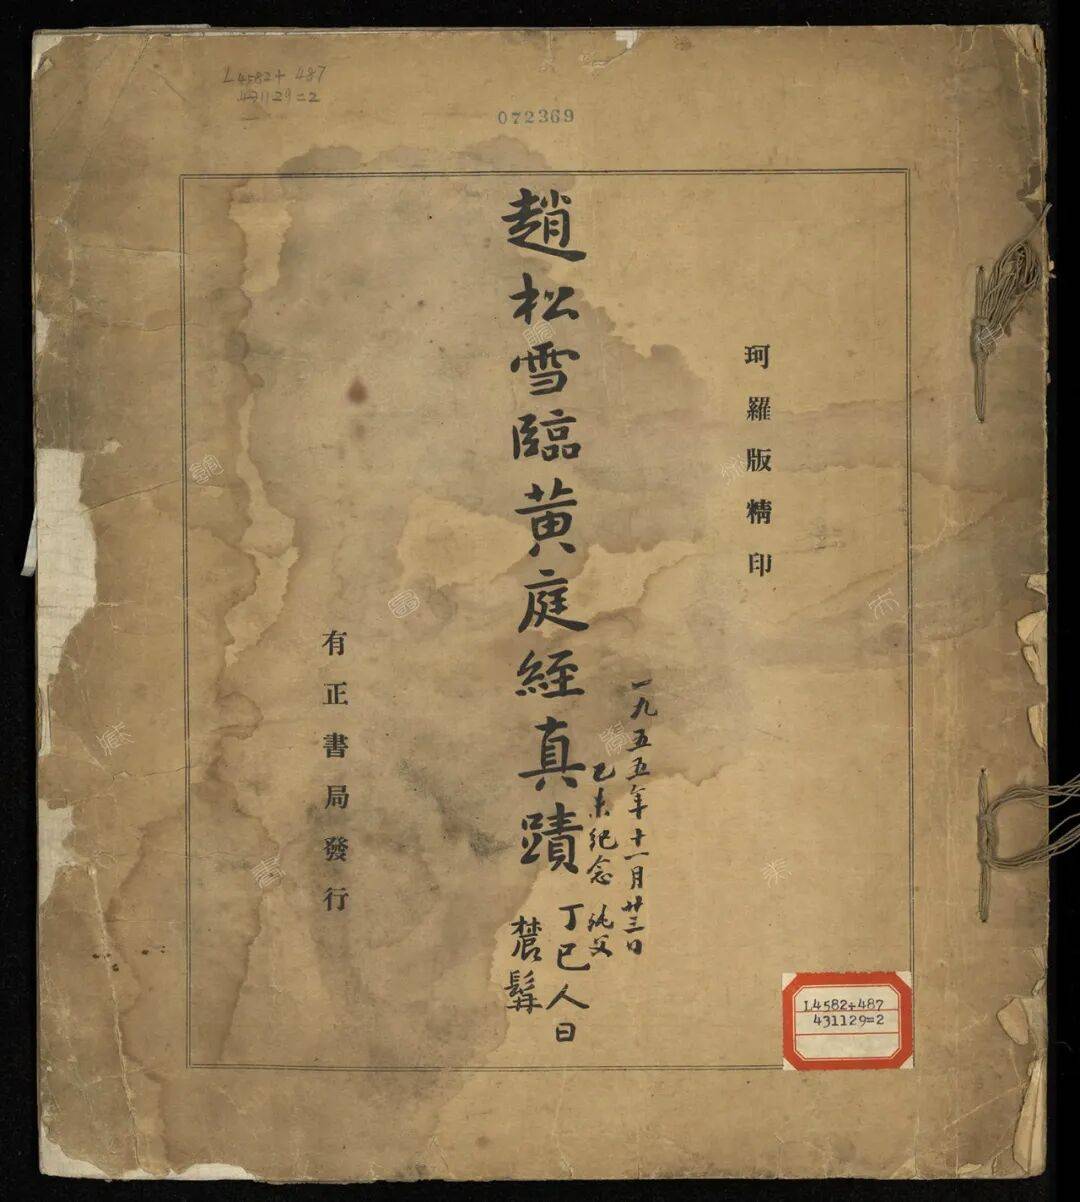 L4582+ 487
431129=2
072369
珂羅版精印
趙松雪臨黄庭經真蹟
丁巳人日
農髯
一九五五年十一月廿三日
乙未纪念 純父
有正書局發行
L4582+487
431129=2